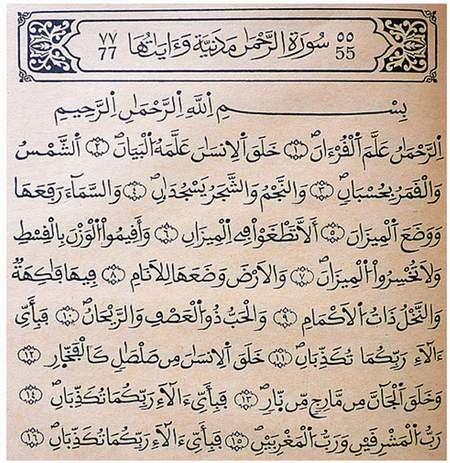 ٧٧ سورة الرحمن مدنية وءاياتها ٥٥
77 55
بِسْمِ اِللَّهِ اِلرَّحْمَٰنِ اِلرَّحِيمِ
اِلرَّحْمَٰنُ عَلَّمَ اَلْقُرْءَانَ ١ خَلَقَ اَلِانسَٰنَ عَلَّمَهُ اُلْبَيَانَ ٢ اَلشَّمْسُ
وَالْقَمَرُ بِحُسْبَانٖ ٣ وَالنَّجْمُ وَالشَّجَرُ يَسْجُدَٰنِ ٤ وَالسَّمَآءَ رَفَعَهَا
وَوَضَعَ اَلْمِيزَانَ ٥ أَلَّا تَطْغَوْاْ فِے اِلْمِيزَانِ ٦ وَأَقِيمُواْ اُلْوَزْنَ بِالْقِسْطِ
وَلَا تُخْسِرُواْ اُلْمِيزَانَ ٧ وَالَارْضَ وَضَعَهَا لِلَانَامِ ٨ فِيهَا فَٰكِهَةٞ
وَالنَّخْلُ ذَاتُ اُلَاكْمَامِ ٩ وَالْحَبُّ ذُو اُلْعَصْفِ وَالرَّيْحَانُ ١٠ فَبِأَيِّ
ءَالَآءِ رَبِّكُمَا تُكَذِّبَانِ ١١ خَلَقَ اَلِانسَٰنَ مِن صَلْصَٰلٖ كَالْفَخّٰارِ ١٢
وَخَلَقَ اَلْجَآنَّ مِن مَّارِجٖ مِّن نّٖارٖ ١٣ فَبِأَيِّ ءَالَآءِ رَبِّكُمَا تُكَذِّبَانِ ١٤
رَبُّ اُلْمَشْرِقَيْنِ وَرَبُّ اُلْمَغْرِبَيْنِ ١٥ فَبِأَيِّ ءَالَآءِ رَبِّكُمَا تُكَذِّبَانِ ١٦